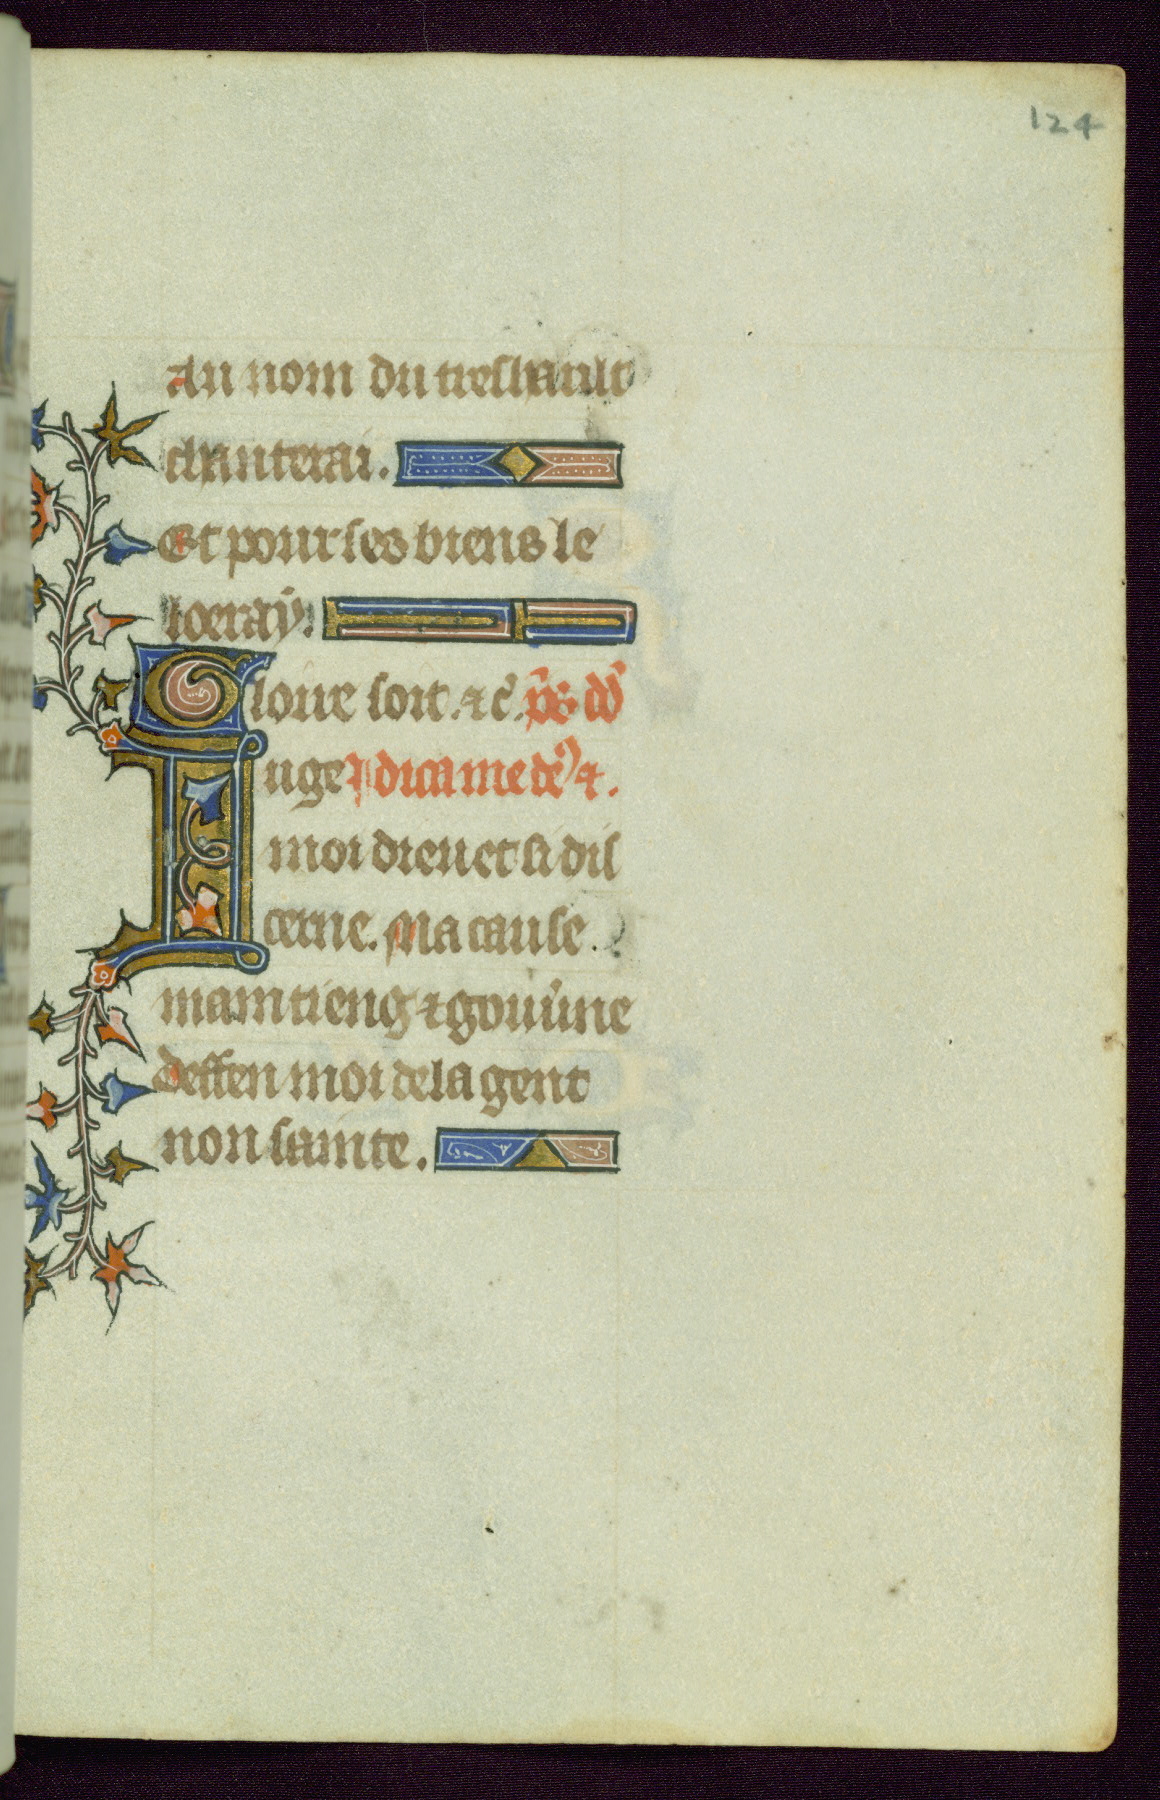 124
Au nom du treshault
chanterai.
Et pour ses biens le
loeray.
Gloire soit. ⁊ c̃. p̃s. dd̾
Iuge Iudica me de᷒ 4.
moi dieu et si dis
cerne. Ma cause.
maintieng ⁊ gouu̾ne
deffen moi de la gent
non sainte.